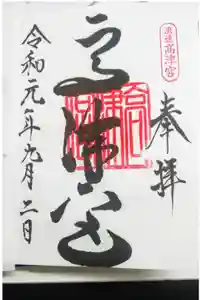 浪速
高津宮
奉拝
高津宮
高津宮
令和元年九月二日